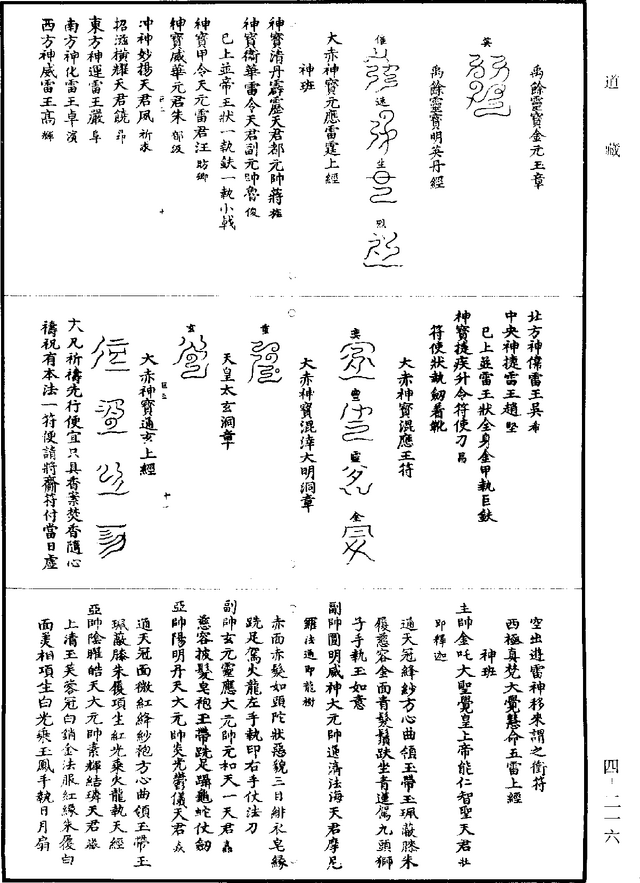 道藏
禹餘靈寶金元玉章
英
禹餘靈寶明英丹經
生
烈
大赤神寶元應雷霆上經
神班
神寶清丹霹靂天君都元帥蔣
神寶衝華雷令天君副元帥魯俊
已上並帝王狀一執鈇一執小戟
神寶甲令天元雷君汪
神寶威華元君朱
冲神妙揚天君風
招搖橫耀天君饒昂
東方神運雷王嚴阜
南方神化雷王卓濱
西方神威雷王高輝
北方神偉雷王吳希
中央神捷雷王趙堅
已上並雷王狀全身金甲執巨鈇
神寶捷疾升令符使刀昌
符使狀執劒着靴
大赤神寶混應玉符
金
大赤神寶混滓大明洞章
天皇太玄洞章
玄
大赤神寶通玄上經
十一
大凡祈禱先行便宜只具香案焚香隨心
禱祝有本法一符便請將齋符付當日虛
空出遊雷神移來謂之衝符
西極真梵大覺慧命五雷上經
神班
主帥金吒大聖覺皇上帝能仁智聖天君
即釋迦
通天冠絳紗方心曲領玉帶玉珮蔽膝朱
履慈容金面青髮鬚趺坐青蓮駕九頭獅
子手執玉如意
副帥圓明威神大元帥運濟法海天君摩尼
羅法通即龍樹
赤面赤髮如頭陀狀惡貌三目緋衣皂緣
跣足駕火龍左手執印右手仗法刀
副帥玄元靈應大元帥元和天一天君
慈容披髮皂袍玉帶跣足躡龜蛇仗劒
亞帥陽明丹天大元帥炎光鬱儀天君
通天冠面微紅絳紗袍方心曲領玉帶玉
珮蔽膝朱履項生紅光乘火龍執天經
亞帥陰暉皓天大元帥素輝結璘天君
上清玉芙蓉冠白銷金法服紅緣朱履白
面美相項生白光乘玉鳳手執日月扇
四-二一六